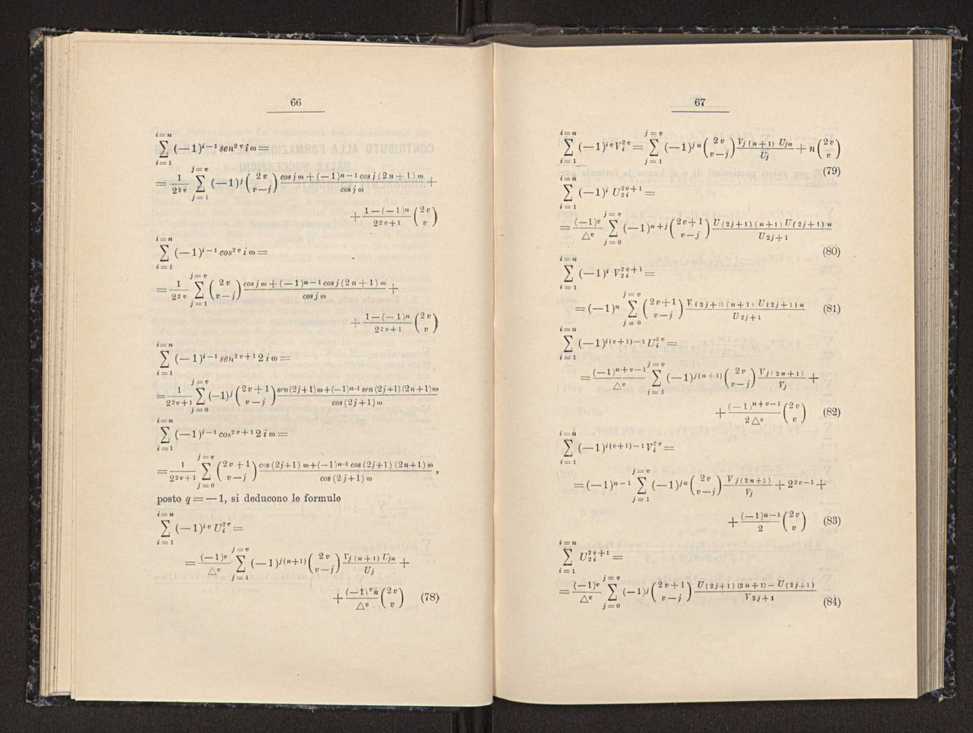 66
\sum_{i=1}^{i=n} (-1)^{i-1} sen^{2v} i\omega =
= \frac{1}{2^{2v}} \sum_{j=1}^{j=v} (-1)^j \binom{2v}{v-j} \frac{cos j\omega + (-1)^{n-1} cos j(2n+1)\omega}{cos j\omega} +
+ \frac{1-(-1)^n}{2^{2v+1}} \binom{2v}{v}
\sum_{i=1}^{i=n} (-1)^{i-1} cos^{2v} i\omega =
= \frac{1}{2^{2v}} \sum_{j=1}^{j=v} \binom{2v}{v-j} \frac{cos j\omega + (-1)^{n-1} cos j(2n+1)\omega}{cos j\omega} +
+ \frac{1-(-1)^n}{2^{2v+1}} \binom{2v}{v}
\sum_{i=1}^{i=n} (-1)^{i-1} sen^{2v+1} 2i\omega =
= \frac{1}{2^{2v+1}} \sum_{j=0}^{j=v} (-1)^j \binom{2v+1}{v-j} \frac{sen(2j+1)\omega + (-1)^{n-1} sen(2j+1)(2n+1)\omega}{cos(2j+1)\omega}
\sum_{i=1}^{i=n} (-1)^{i-1} cos^{2v+1} 2i\omega =
= \frac{1}{2^{2v+1}} \sum_{j=0}^{j=v} \binom{2v+1}{v-j} \frac{cos(2j+1)\omega + (-1)^{n-1} cos(2j+1)(2n+1)\omega}{cos(2j+1)\omega} ,
posto q = — 1, si deducono le formule
\sum_{i=1}^{i=n} (-1)^{iv} U_i^{2v} =
= \frac{(-1)^v}{\triangle^v} \sum_{j=1}^{j=v} (-1)^{j(n+1)} \binom{2v}{v-j} \frac{V_{j(n+1)} U_{jn}}{U_j} +
+ \frac{(-1)^v n}{\triangle^v} \binom{2v}{v} (78)
67
\sum_{i=1}^{i=n} (-1)^{iv} V_i^{2v} = \sum_{j=1}^{j=v} (-1)^{jn} \binom{2v}{v-j} \frac{V_{j(n+1)} U_{jn}}{U_j} + n \binom{2v}{v}
(79)
\sum_{i=1}^{i=n} (-1)^i U_{2i}^{2v+1} =
= \frac{(-1)^v}{\triangle^v} \sum_{j=0}^{j=v} (-1)^{n+j} \binom{2v+1}{v-j} \frac{U_{(2j+1)(n+1)} U_{(2j+1)n}}{U_{2j+1}}
(80)
\sum_{i=1}^{i=n} (-1)^i V_{2i}^{2v+1} =
= (-1)^n \sum_{j=0}^{j=v} \binom{2v+1}{v-j} \frac{V_{(2j+1)(n+1)} U_{(2j+1)n}}{U_{2j+1}} (81)
\sum_{i=1}^{i=n} (-1)^{i(v+1)-1} U_i^{2v} =
= \frac{(-1)^{n+v-1}}{\triangle^v} \sum_{j=1}^{j=v} (-1)^{j(n+1)} \binom{2v}{v-j} \frac{V_{j(2n+1)}}{V_j} +
+ \frac{(-1)^{n+v-1}}{2\triangle^v} \binom{2v}{v} (82)
\sum_{i=1}^{i=n} (-1)^{i(v+1)-1} V_i^{2v} =
= (-1)^{n-1} \sum_{j=1}^{j=v} (-1)^{jn} \binom{2v}{v-j} \frac{V_{j(2n+1)}}{V_j} + 2^{2v-1} +
+ \frac{(-1)^{n-1}}{2} \binom{2v}{v} (83)
\sum_{i=1}^{i=n} U_{2i}^{2v+1} =
= \frac{(-1)^v}{\triangle^v} \sum_{j=0}^{j=v} (-1)^j \binom{2v+1}{v-j} \frac{U_{(2j+1)(2n+1)} - U_{(2j+1)}}{V_{2j+1}}
(84)